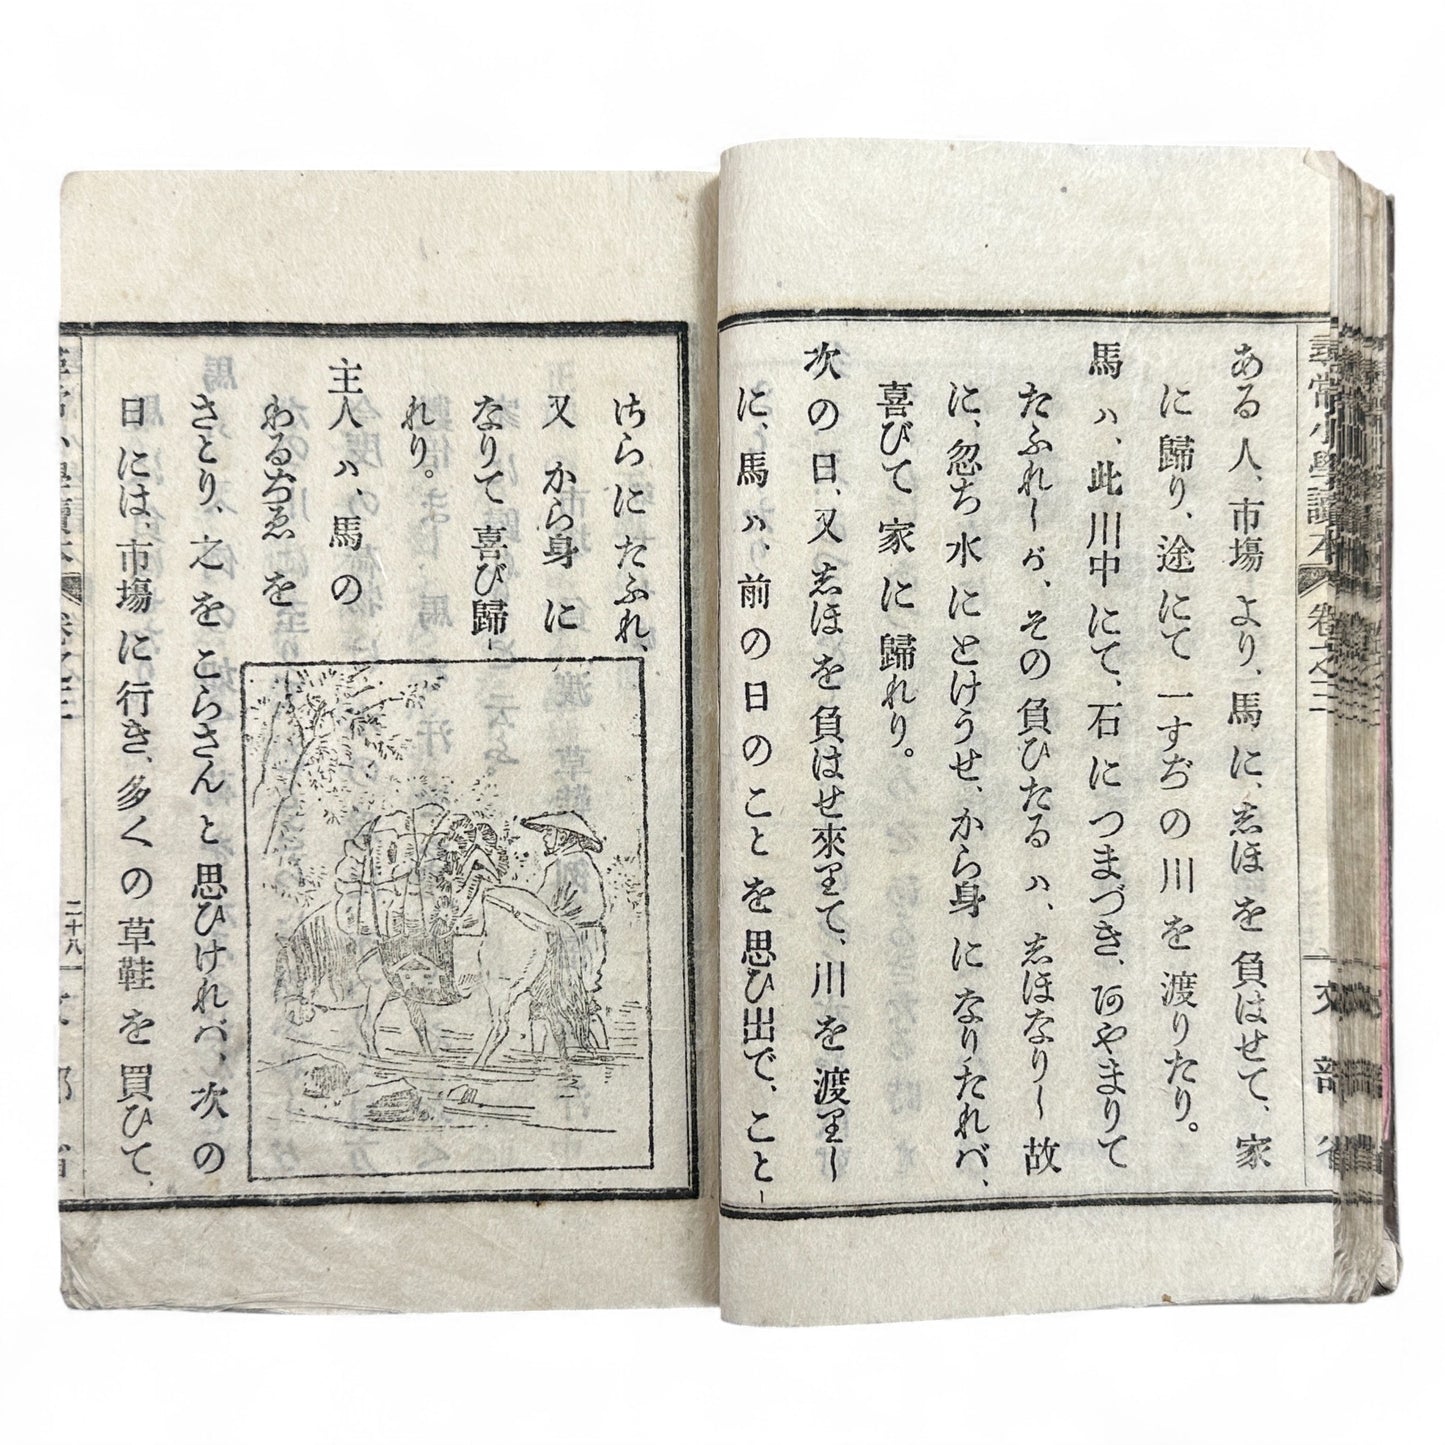 尋常小學讀本 卷之二
文部省
ある人、市塲より、馬に、志ほを負はせて、家
に歸り、途にて一すぢの川を渡りたり。
馬ハ、此川中にて、石につまづき、あやまりて
たふれしが、その負ひたるハ、志ほなりし故
に、忽ち水にとけうせ、から身になりたれバ、
喜びて家に歸れり。
次の日、又志ほを負はせ來りて、川を渡りし
に、馬ハ、前の日のことを思ひ出で、ことー
さらにたふれ、
又から身に
なりて喜び歸ー
れり。
主人ハ、馬の
わるぢゑを
さとり、之をこらさんと思ひけれバ、次の
日には、市塲に行き、多くの草鞋を買ひて、
二十八